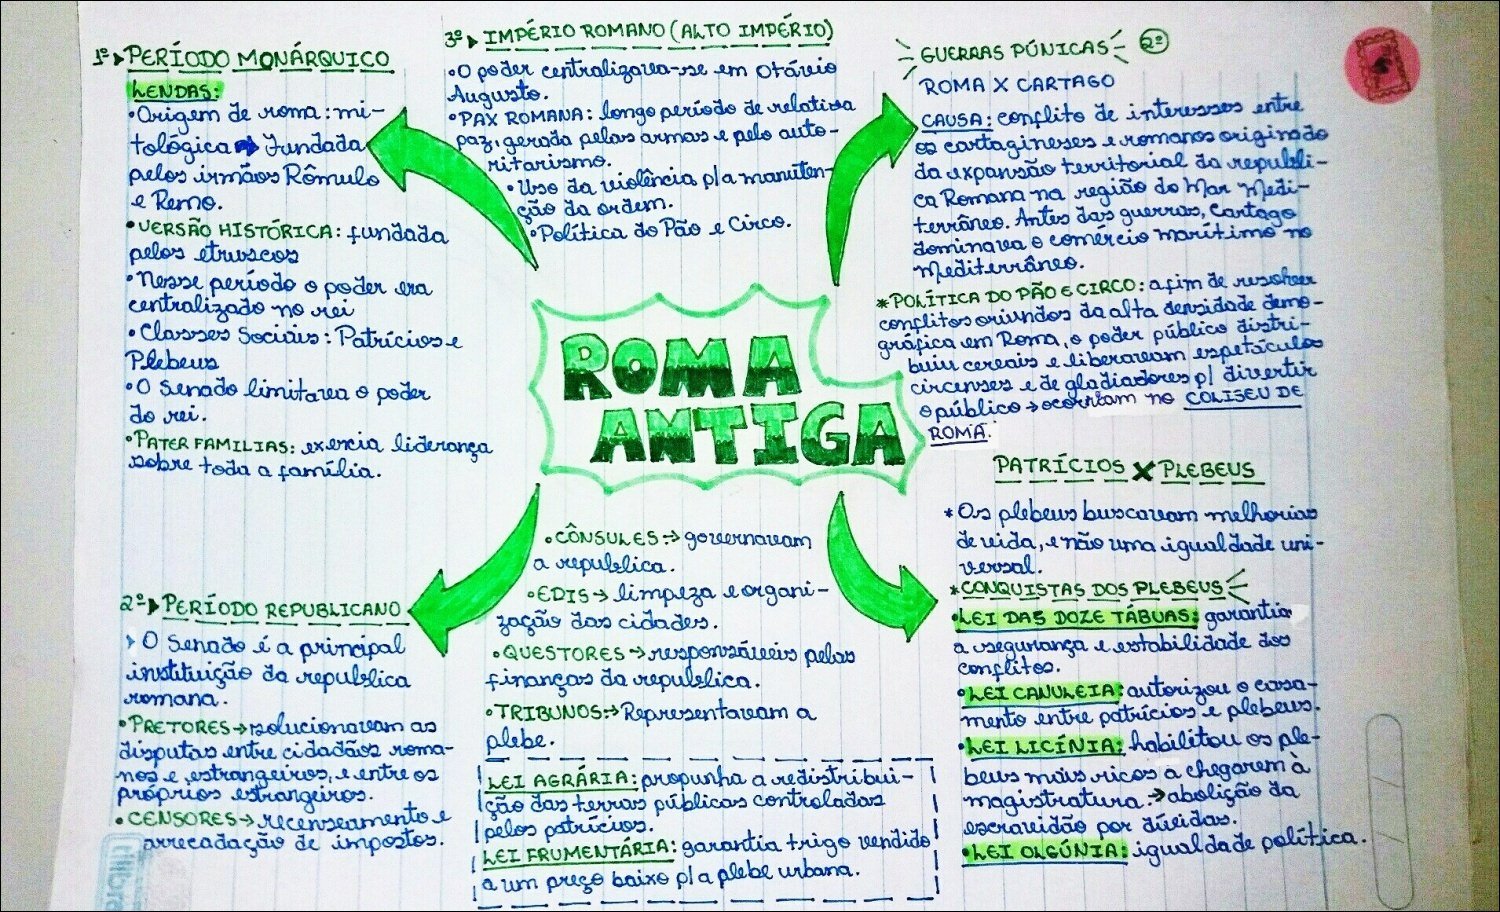 1º PERÍODO MONÁRQUICO
LENDAS:
•Origem de roma: mi-
tológica → Fundada
pelos irmãos Rômulo
e Remo.
•VERSÃO HISTÓRICA: fundada
pelos etruscos
•Nesse período o poder era
centralizado no rei
•Classes Sociais: Patrícios e
Plebeus
•O Senado limitava o poder
do rei.
•PATER FAMILIAS: exercia liderança
sobre toda a família.
3º IMPÉRIO ROMANO (ALTO IMPÉRIO)
•O poder centralizava-se em Otávio
Augusto.
•PAX ROMANA: longo período de relativa
paz, gerada pelas armas e pelo auto-
ritarismo.
•Uso da violência p/a manuten-
ção da ordem.
•Política do Pão e Circo.
GUERRAS PÚNICAS 2º
ROMA X CARTAGO
CAUSA: conflito de interesses entre
os cartagineses e romanos originado
da expansão territorial da repúbli-
ca Romana na região do Mar Medi-
terrâneo. Antes das guerras, Cartago
dominava o comércio marítimo no
Mediterrâneo.
*POLÍTICA DO PÃO E CIRCO: a fim de resolver
conflitos oriundos da alta densidade demo-
gráfica em Roma, o poder público distri-
buiu cereais e liberavam espetáculos
circenses e de gladiadores p/ divertir
o público → ocorriam no COLISEU DE
ROMA.
ROMA
ANTIGA
2º PERÍODO REPUBLICANO
O Senado é a principal
instituição da republica
romana.
•PRETORES → solucionavam as
disputas entre cidadãos roma-
nos e estrangeiros, e entre os
próprios estrangeiros.
•CENSORES → recenseamento e
arrecadação de impostos.
•CÔNSULES → governavam
a republica.
•EDIS → limpeza e organi-
zação das cidades.
•QUESTORES → responsáveis pelas
finanças da republica.
•TRIBUNOS → Representavam a
plebe.
LEI AGRÁRIA: propunha a redistribui-
ção das terras públicas controladas
pelos patrícios.
LEI FRUMENTÁRIA: garantia trigo vendido
a um preço baixo p/a plebe urbana.
PATRÍCIOS X PLEBEUS
*Os plebeus buscavam melhorias
de vida, e não uma igualdade uni-
versal.
*CONQUISTAS DOS PLEBEUS
•LEI DAS DOZE TÁBUAS: garantia
a segurança e estabilidade dos
conflitos.
•LEI CANULEIA: autorizou o casa-
mento entre patrícios e plebeus.
•LEI LICÍNIA: habilitou os ple-
beus mais ricos a chegarem à
magistratura. → abolição da
escravidão por dívidas.
•LEI OLGÚNIA: igualdade política.